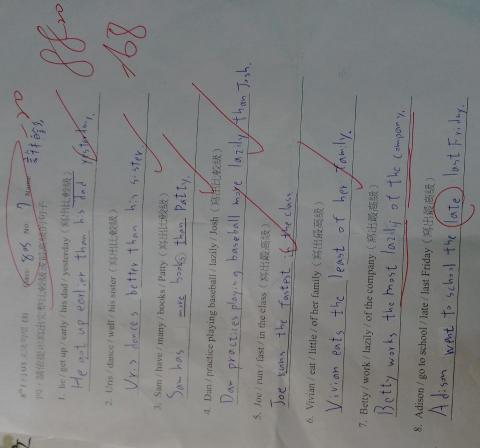 88
-20
168
-20
Class: 805 No: 7 Name:
1. he / got up / early / his dad / yesterday (寫出比較級)
He got up earlier than his dad yesterday.
2. Urs / dance / well / his sister (寫出比較級)
Urs dances better than his sister.
3. Sam / have / many / books / Patty (寫出比較級)
Sam has more books than Patty.
4. Dan / practice playing baseball / lazily / Josh (寫出比較級)
Dan practices playing baseball more lazily than Josh.
5. Joe / run / fast / in the class (寫出最高級)
Joe runs the fastest in the class
6. Vivian / eat / little / of her family (寫出最高級)
Vivian eats the least of her family.
7. Betty / work / lazily / of the company (寫出最高級)
Betty works the most lazily of the company.
8. Adison / go to school / late / last Friday (寫出最高級)
Adison went to school the late last Friday.